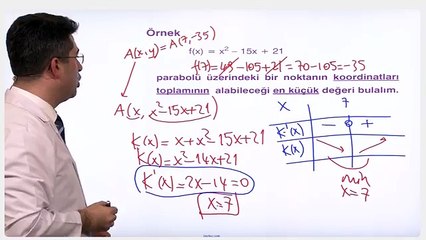 Örnek
f(x) = x² – 15x + 21
A(x,y) = A(7,-35)
f(7) = 49 - 105 + 21 = 70 - 105 = -35
parabolü üzerindeki bir noktanın koordinatları
toplamının alabileceği en küçük değeri bulalım.
A(x, x²-15x+21)
K(x) = x + x² - 15x + 21
K(x) = x² - 14x + 21
K'(x) = 2x - 14 = 0
x = 7
X 7
K'(x) - 0 +
K(x)
min
x = 7